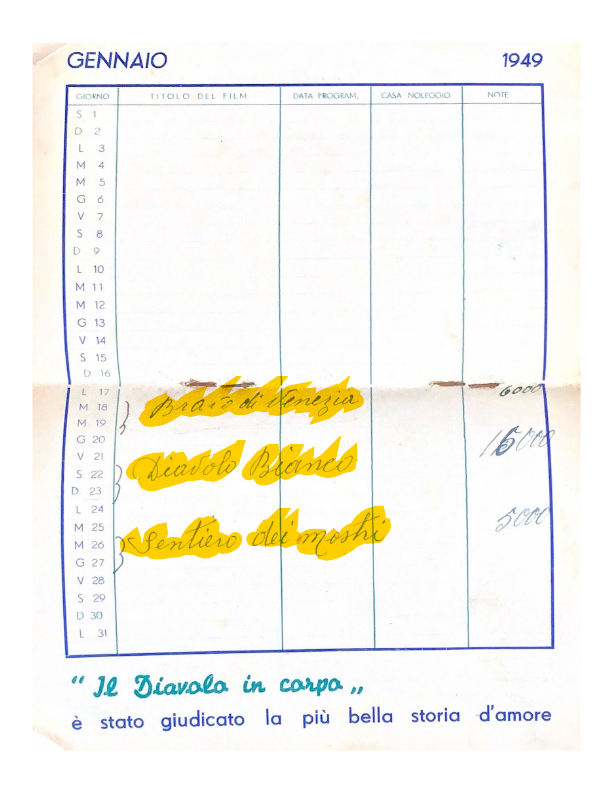 GENNAIO 1949
GIORNO TITOLO DEL FILM DATA PROGRAM. CASA NOLEGGIO NOTE
S 1
D 2
L 3
M 4
M 5
G 6
V 7
S 8
D 9
L 10
M 11
M 12
G 13
V 14
S 15
D 16
L 17 6000
M 18 di Venezia
M 19
G 20 15000
V 21 Diavolo Bianco
S 22
D 23
L 24
M 25 5000
M 26 Sentiero dei mostri
G 27
V 28
S 29
D 30
L 31
“ Il Diavolo in corpo „
è stato giudicato la più bella storia d'amore